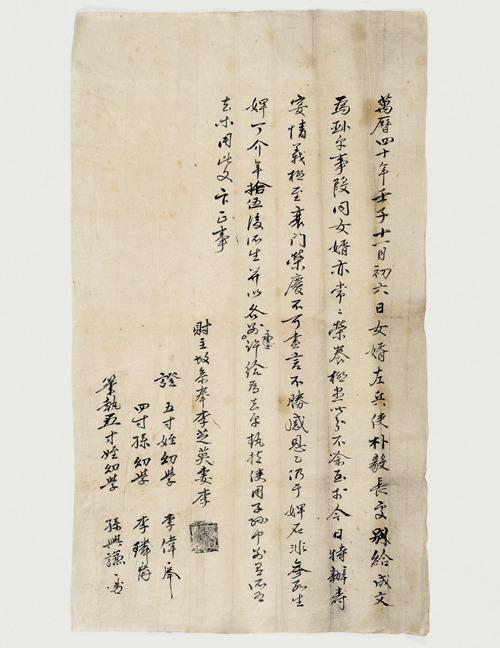 萬曆四十年壬子十一月初六日女婿左兵使朴毅長處別給成文
爲臥乎事段同女婿亦常〻榮養極盡叱分不喩至於今日特辦壽
宴情義極至衰门榮慶不可盡言不勝感恩乙仍于婢石非矣 生
婢丁介年拾伍後所生幷以各別許給爲去乎執持使用子孫中別爲所有
去等用此文卞正事
財主故參奉李芝英妻李
證 五寸姪幼學 李偉
四寸孫幼學 李璘
筆執五寸姪幼學 孫興謙